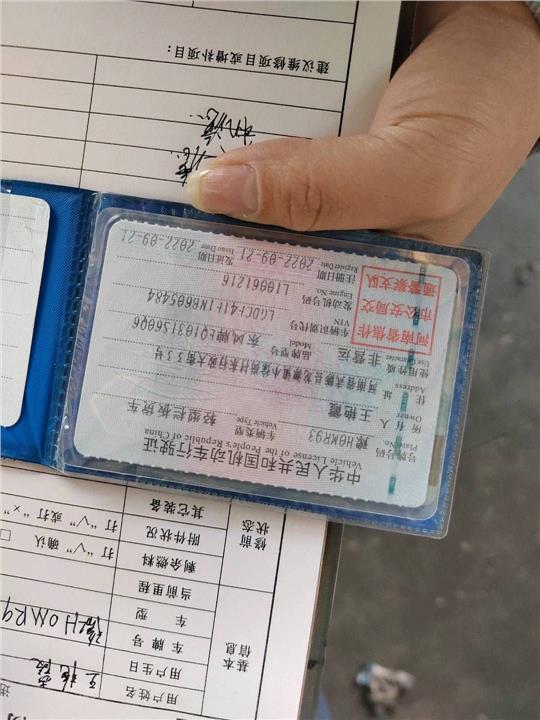 中华人民共和国机动车行驶证
Vehicle License of the People's Republic of China
号牌号码
Plate No.
车辆类型 轻型栏板货车
Vehicle Type
所有人 王艳霞
Owner
住址
Address
使用性质 非营运
Use Character
品牌型号 东风牌EQ1031S60Q6
Model
河南省焦作
市公安局交
通警察支队
车辆识别代号 LGDCJ41F1NB605484
VIN
发动机号码 L10061216
Engine No.
注册日期 2022-09-21
Register Date
发证日期 2022-09-21
Issue Date
建议维修项目或增补项目：
基本信息
用户姓名
用户生日
车牌号
车型
当前里程
修前状态
剩余燃料
附件状况 打“√”确认
其它装备 打“√”或打“×”